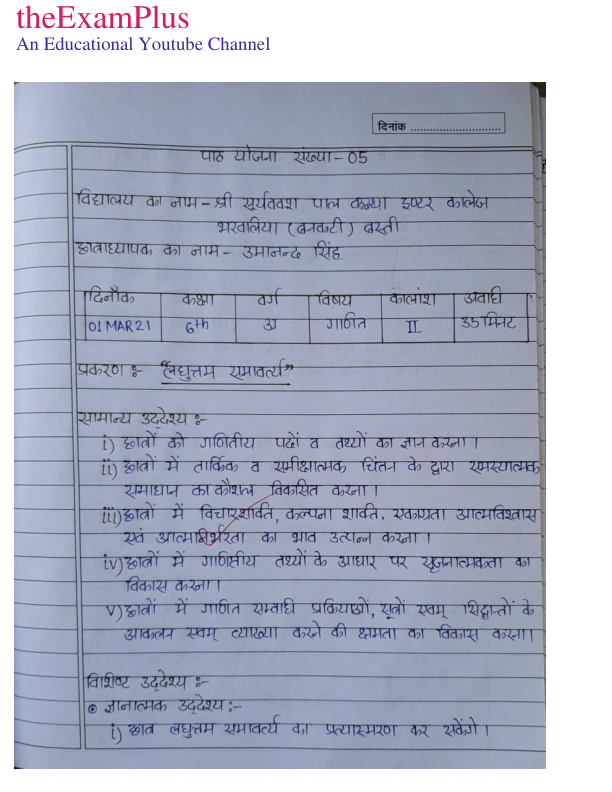 theExamPlus
An Educational Youtube Channel
दिनांक ............................
पाठ योजना संख्या - 05
विद्यालय का नाम - श्री सूर्यवंश पाल कन्या इण्टर कालेज
भरवालिया (बनकटी) बस्ती
छात्राध्यापक का नाम - उमानन्द सिंह
दिनाँक कक्षा वर्ग विषय कालांश अवधि
01 MAR 21 6th अ गणित II 35 मिनट
प्रकरण :- "लघुत्तम समावर्त्य"
सामान्य उद्देश्य :-
i) छात्रों को गणितीय पदों व तथ्यों का ज्ञान करना ।
ii) छात्रों में तार्किक व समीक्षात्मक चिंतन के द्वारा समस्यात्मक
समाधान का कौशल विकसित करना ।
iii) छात्रों में विचारशक्ति, कल्पना शक्ति, एकाग्रता आत्मविश्वास
एवं आत्मनिर्भरता का भाव उत्पन्न करना ।
iv) छात्रों में गणितीय तथ्यों के आधार पर सृजनात्मकता का
विकास करना ।
v) छात्रों में गणित सम्बंधि प्रक्रियाओं, सूत्रों एवम् सिद्वान्तों के
आकलन एवम् व्याख्या करने की क्षमता का विकास करना ।
विशिष्ट उद्देश्य :-
⊙ ज्ञानात्मक उद्देश्य :-
i) छात्र लघुत्तम समावर्त्य का प्रत्यास्मरण कर सकेंगे ।